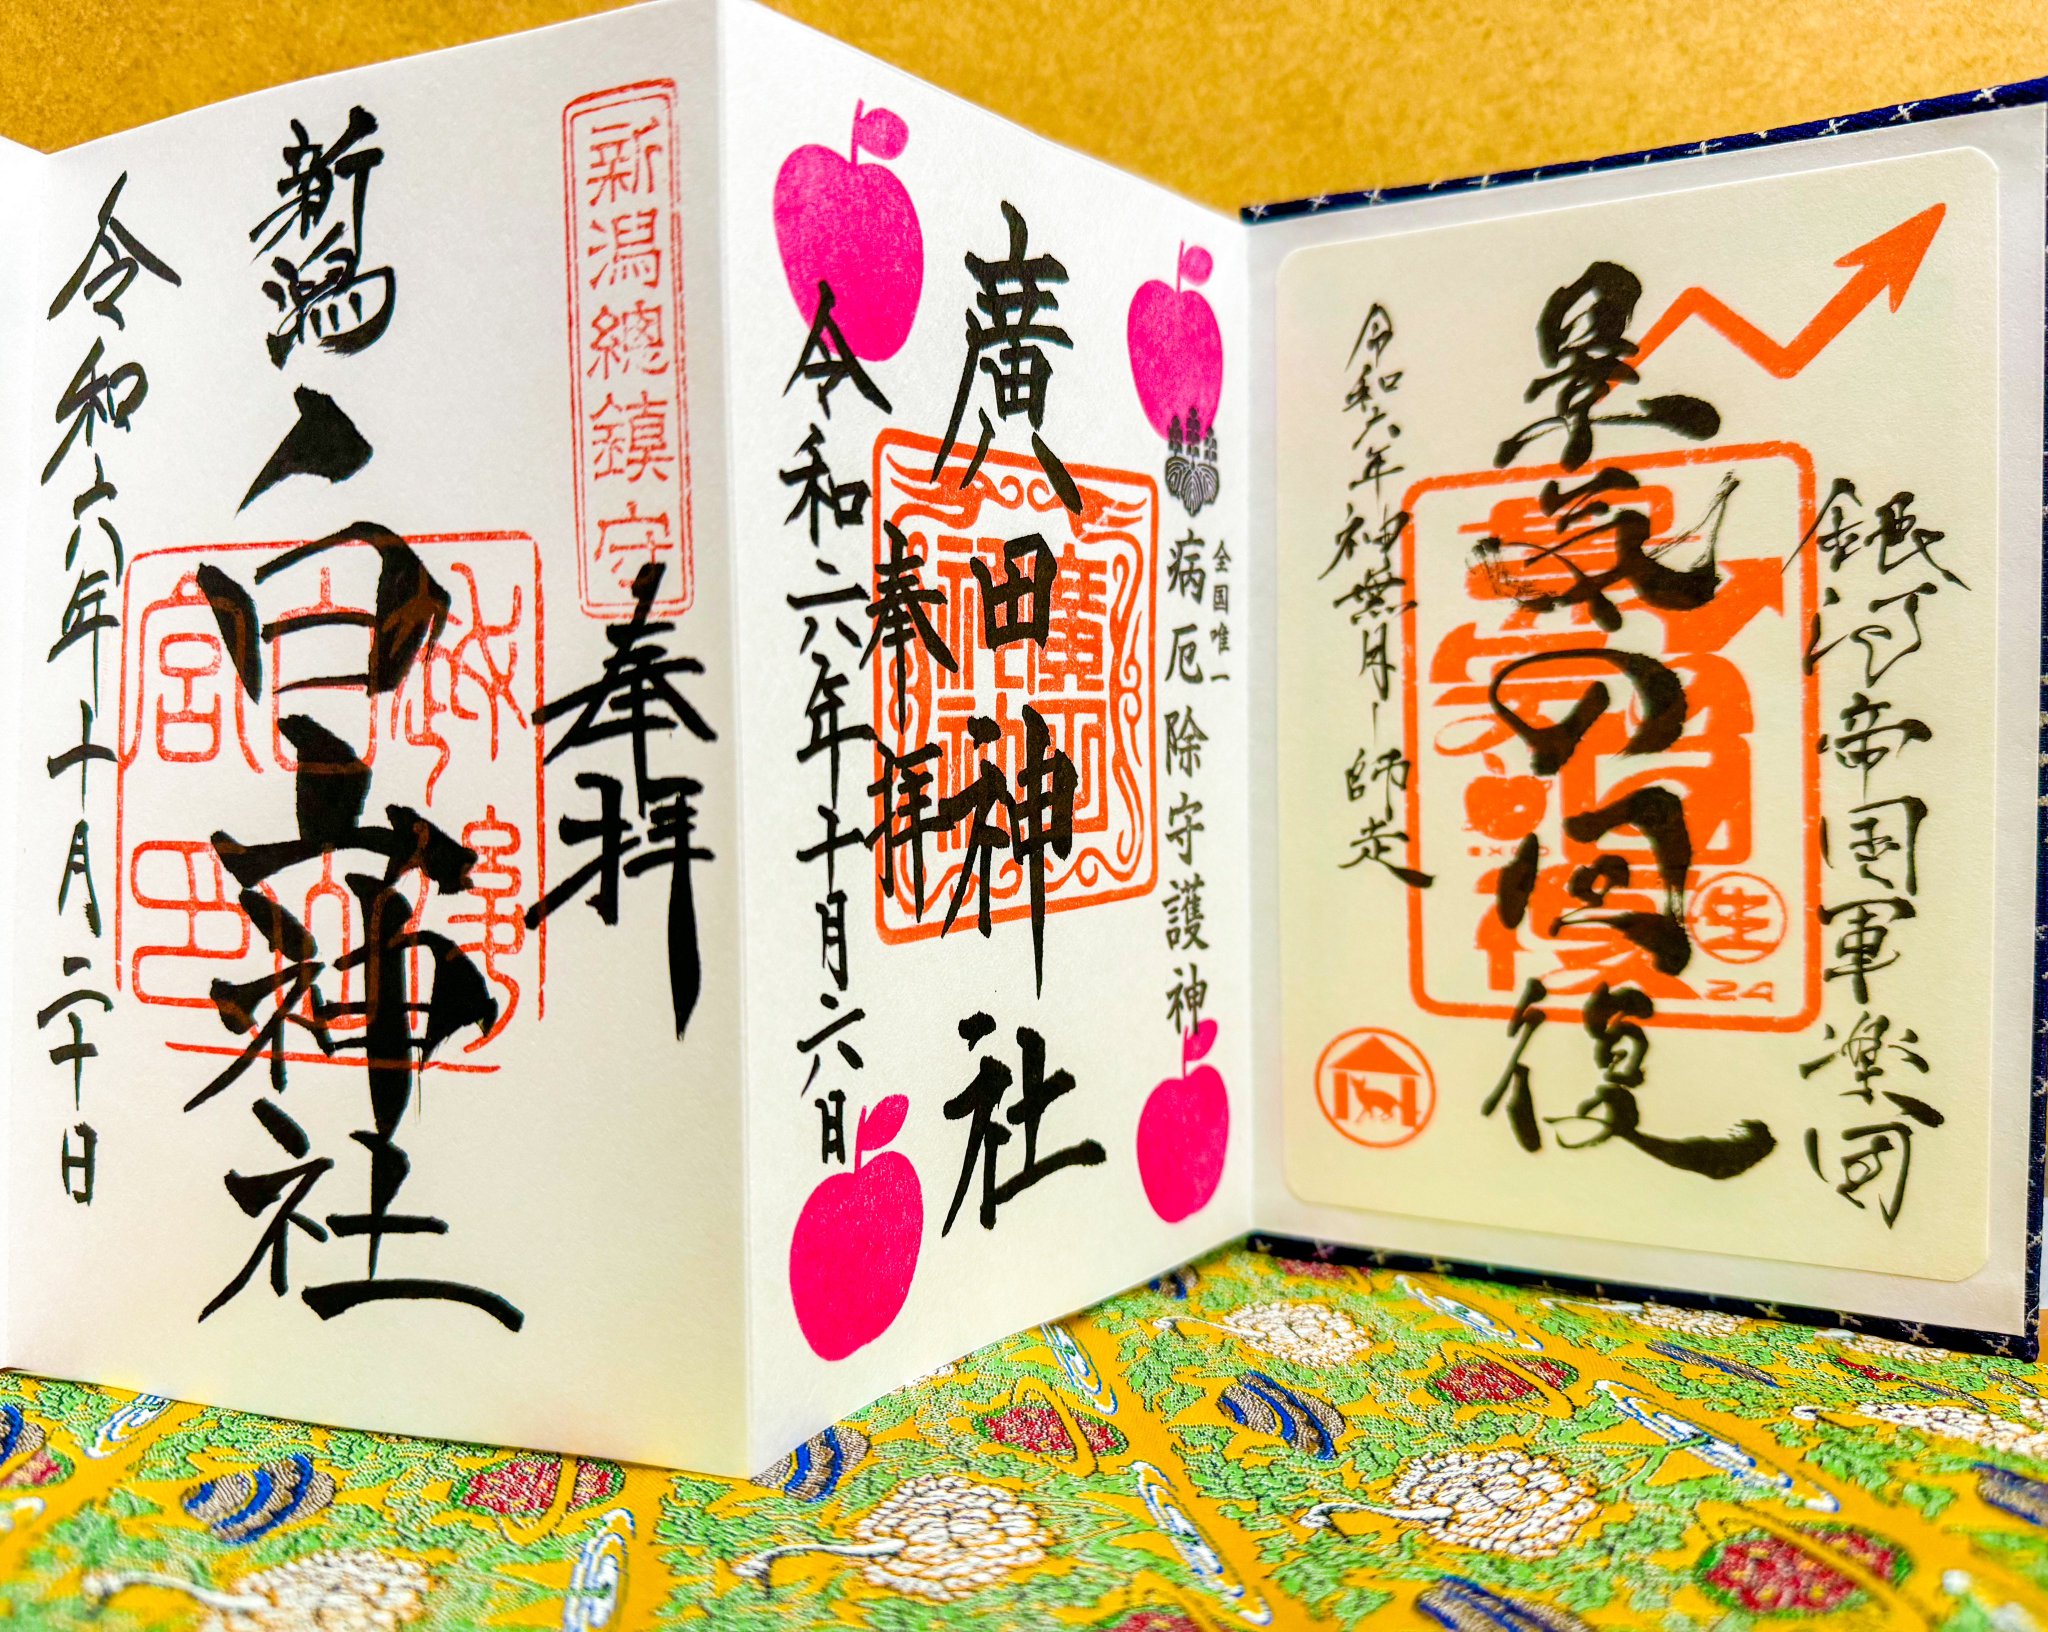 銀河帝国軍楽団
景気の回復
令和六年神無月〜師走
景気回復
生
24
全国唯一
病厄除守護神
廣田神社
奉拝
令和六年十月六日
新潟總鎮守
奉拝
新潟
白山神社
令和六年十月二十日